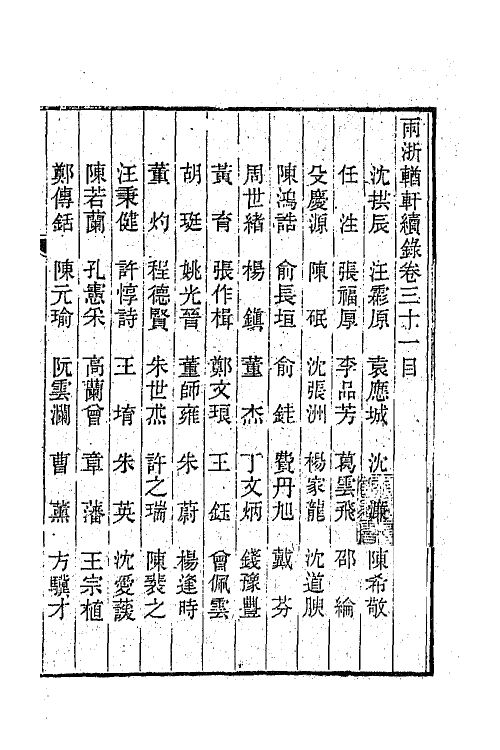 兩浙輶軒續錄卷三十一目
沈拱辰 汪霦原 袁應城 沈濂 陳希敬
任泩 張福厚 李品芳 葛雲飛 邵綸
殳慶源 陳珉 沈張洲 楊家龍 沈道腴
陳鴻誥 俞長垣 俞銈 費丹旭 戴芬
周世緒 楊鎮 董杰 丁文炳 錢豫豐
黃育 張作楫 鄭文琅 王鈺 曾佩雲
胡珽 姚光晉 董師雍 朱蔚 楊逢時
董灼 程德賢 朱世杰 許之瑞 陳裴之
汪秉健 許惇詩 王堉 朱英 沈愛蘐
陳若蘭 孔憲采 高蘭曾 章藩 王宗植
鄭傳銛 陳元瑜 阮雲瀾 曹薰 方驥才